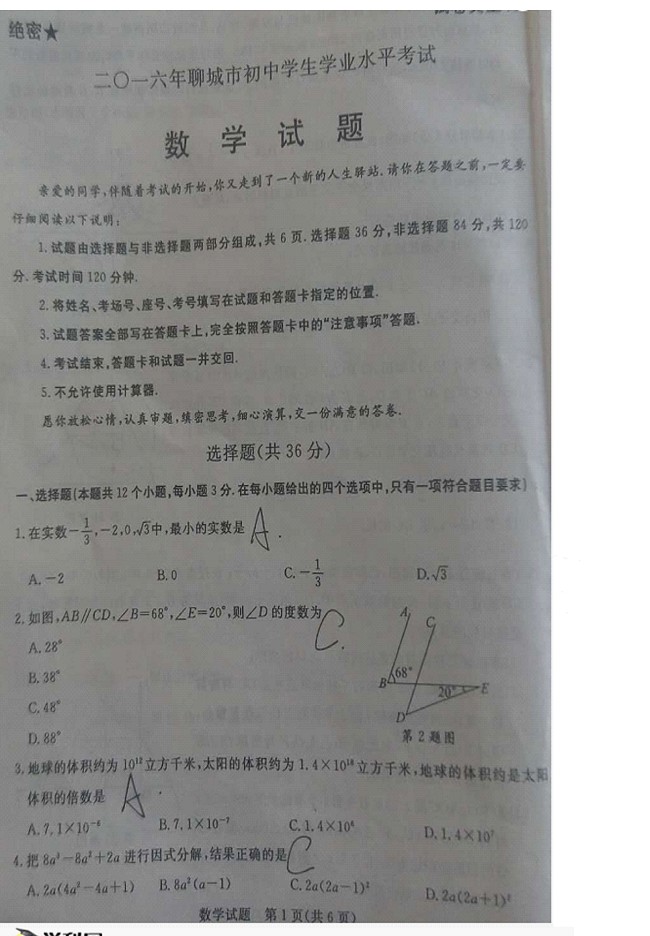 绝密★
二〇一六年聊城市初中学生学业水平考试
数学试题
亲爱的同学,伴随着考试的开始,你又走到了一个新的人生驿站.请你在答题之前,一定要
仔细阅读以下说明:
1.试题由选择题与非选择题两部分组成,共6页.选择题36分,非选择题84分,共120
分.考试时间120分钟.
2.将姓名、考场号、座号、考号填写在试题和答题卡指定的位置.
3.试题答案全部写在答题卡上,完全按照答题卡中的“注意事项”答题.
4.考试结束,答题卡和试题一并交回.
5.不允许使用计算器.
愿你放松心情,认真审题,缜密思考,细心演算,交一份满意的答卷.
选择题(共36分)
一、选择题(本题共12个小题,每小题3分.在每小题给出的四个选项中,只有一项符合题目要求)
1.在实数-1/3,-2,0,√3中,最小的实数是 A.
A.-2 B.0 C.-1/3 D.√3
2.如图,AB∥CD,∠B=68°,∠E=20°,则∠D的度数为 C.
A.28°
B.38°
C.48°
D.88°
A C
B 68° 20° E
D
第2题图
3.地球的体积约为10¹²立方千米,太阳的体积约为1.4×10¹⁸立方千米,地球的体积约是太阳
体积的倍数是 A.
A.7.1×10⁻⁶ B.7.1×10⁻⁷ C.1.4×10⁶ D.1.4×10⁷
4.把8a³-8a²+2a进行因式分解,结果正确的是 C
A.2a(4a²-4a+1) B.8a²(a-1) C.2a(2a-1)² D.2a(2a+1)²
数学试题 第1页(共6页)